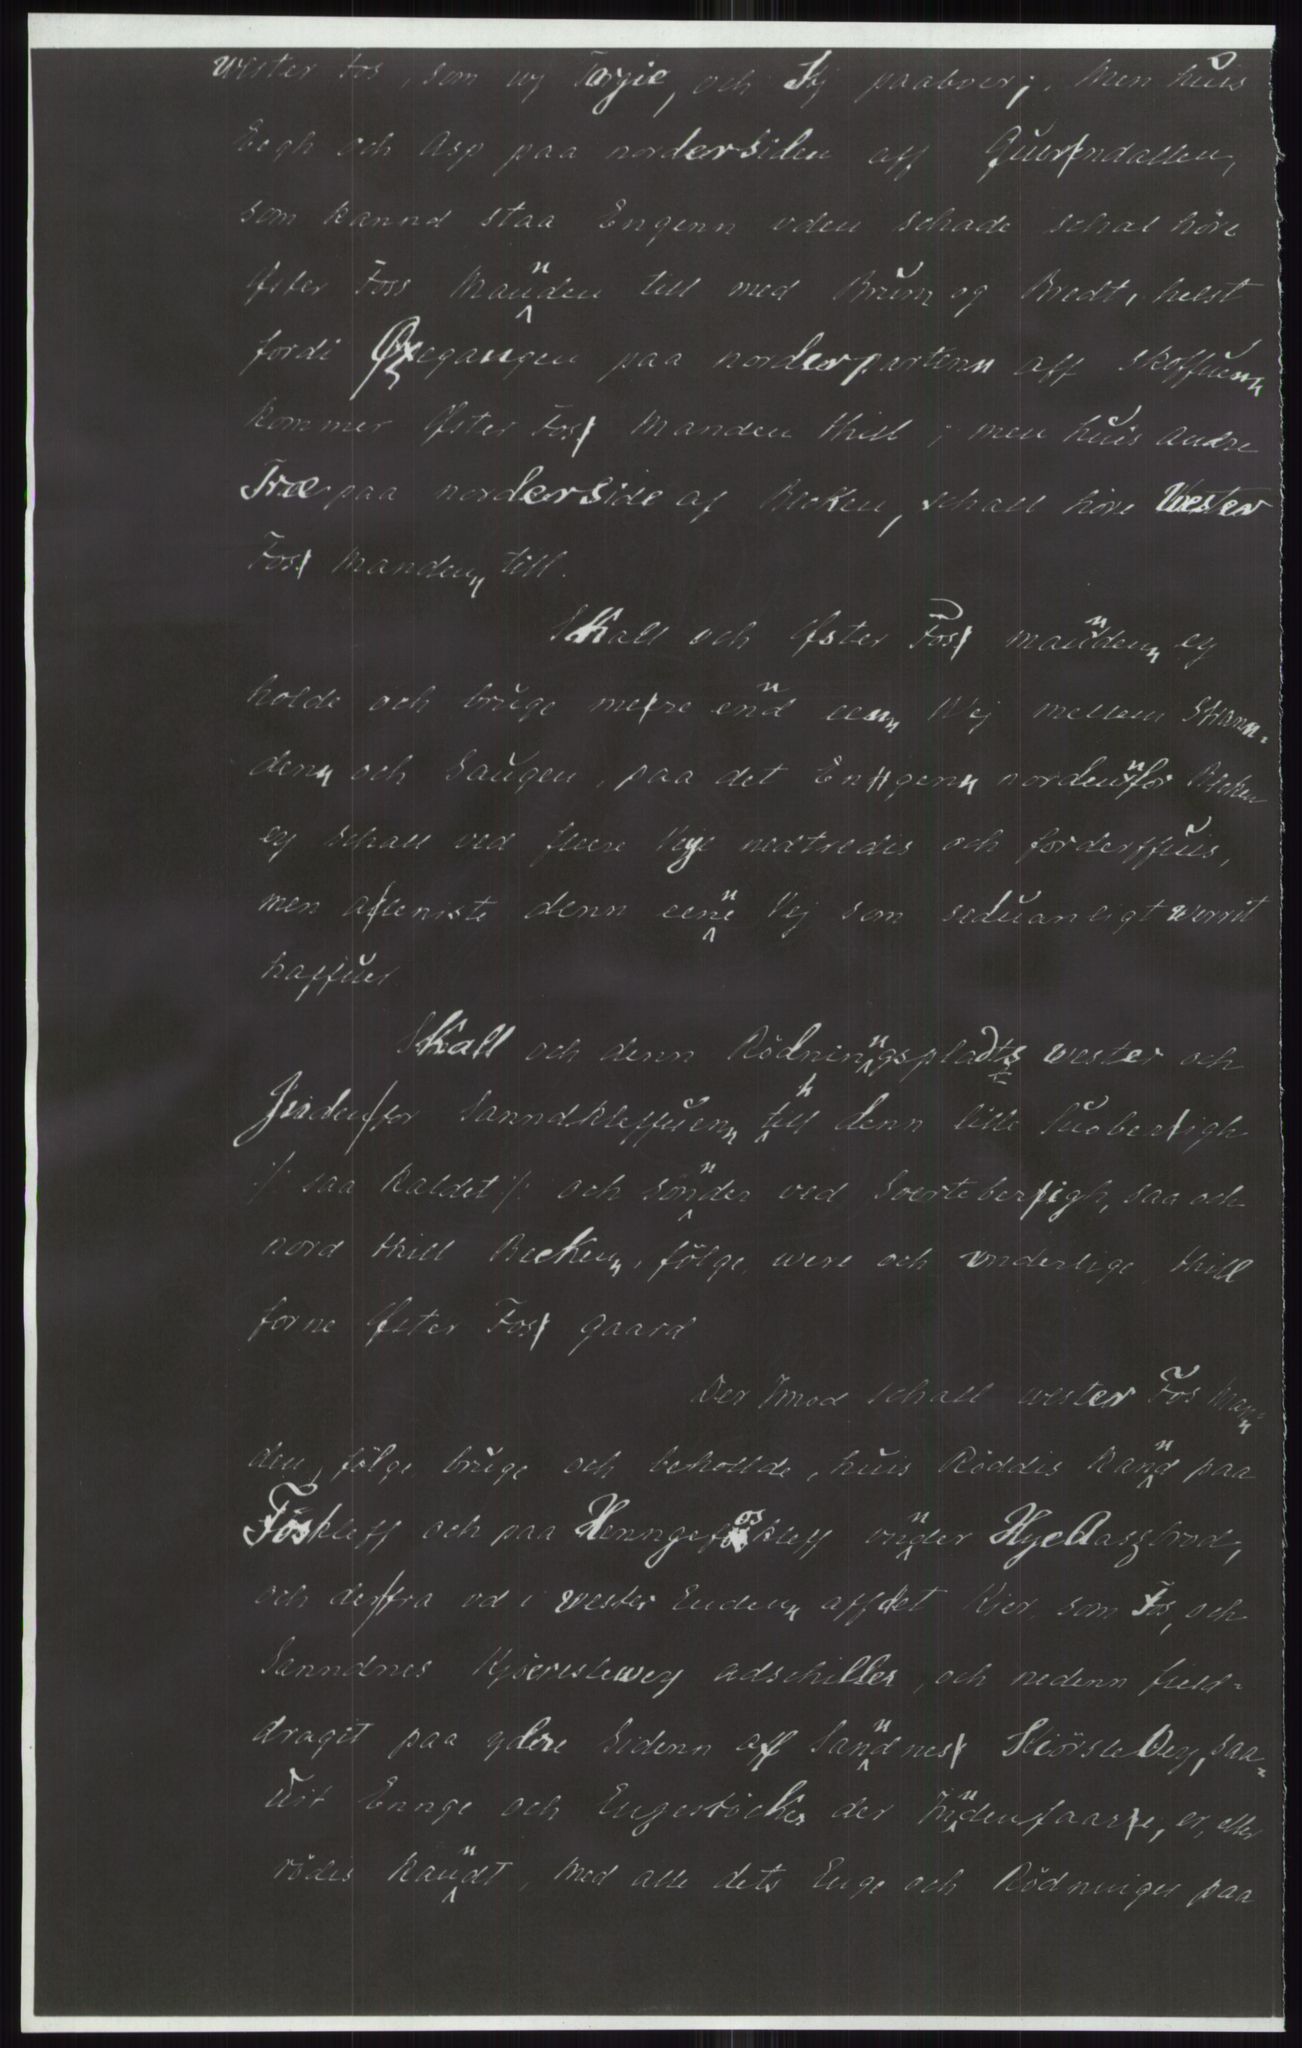 wester Fos, som nu Targie, och Sij paaboer; Men huis
Eegh och Asp paa norder siden aff Querndallen,
som kannd staa Engenn uden schade schal höre
Öster Foss Mannden till med Brum og Bredt, helst
fordi Øxegangen paa norderpartenn aff skoffuenn
kommer Öster Fos Manden thill; men huis andre
Træ paa norder Side af Becken, schall höre Wester
Fos Mandenn till.
Skall och Öster Fos manndenn ey
holde och bruge mere ennd eenn Vej mellem Strann-
denn och Saugen, paa det Enngenn nordennfor Becken
ey schall ved flere Veye nedtredis och forderffuis,
men alleniste denn eene Vej som seduanligt werrit
haffuer.
Skall och denn Rödninngspladts wester och
Jnden for Sanndkleffuenn till denn lille Luoberigh
/: saa kaldet :/ och sönnder ved Soerteberigh, saa och
nord thill Beckenn, fölge, were och underlige, thill
forne Öster Fos gaard
Der Jmod schall wester Fos Mann-
den, fölge, bruge och beholde, huis Röddis kannd paa
Föskleff och paa Henngefoskleff under Hyellaszbrod,
och derfra ud i wester Endenn aff det Kier, som Fos, och
Sanndnes Kjöerslewey adschilles, och nedenn field-
dragit paa ydre Sidenn af Sanndnes Kiörsle Vey, saa-
uit Ennge och Engestöcker der Jnndenfaare, er, eller
rödis kanndt, med alle dets Enge och Rödninger paa